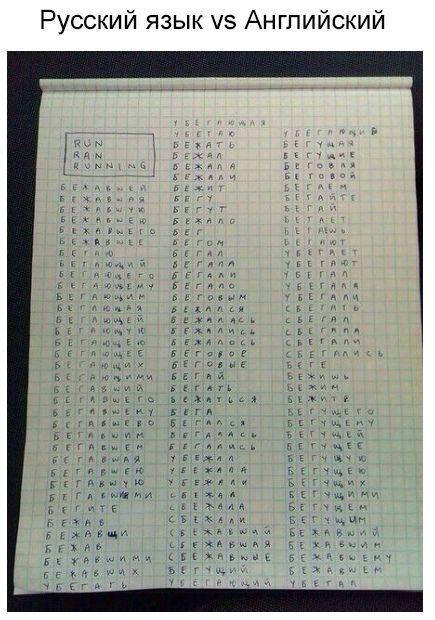 Русский язык vs Английский
RUN
RAN
RUNNING
БЕЖАВШЕЙ
БЕЖАВШАЯ
БЕЖАВШУЮ
БЕЖАВШЕЮ
БЕЖАВШЕГО
БЕЖАВШЕЕ
БЕГАЮ
БЕГАЮЩИЙ
БЕГАЮЩЕГО
БЕГАЮЩЕМУ
БЕГАЮЩИМ
БЕГАЮЩАЯ
БЕГАЮЩЕЙ
БЕГАЮЩУЮ
БЕГАЮЩЕЮ
БЕГАЮЩЕЕ
БЕГАЮЩИХ
БЕГАЮЩИМИ
БЕГАВШИЙ
БЕГАВШЕГО
БЕГАВШЕМУ
БЕГАВШЕВО
БЕГАВШИМ
БЕГАВШЕМ
БЕГАВШАЯ
БЕГАВШЕЮ
БЕГАВШУЮ
БЕГАВШИМИ
БЕГИТЕ
БЕЖАВ
БЕЖАВШИ
БЕЖАВ
БЕЖАВШИМИ
БЕЖАВШИХ
УБЕГАТЬ
УБЕГАЮЩАЯ
УБЕГАЮ
БЕЖАТЬ
БЕЖАЛ
БЕЖАЛА
БЕЖАЛИ
БЕЖИТ
БЕГУ
БЕГУТ
БЕЖАЛО
БЕГ
БЕГОМ
БЕГАЛ
БЕГАЛА
БЕГАЛИ
БЕГАЛО
БЕГОВЫМ
БЕЖАЛСЯ
БЕЖАЛАСЬ
БЕЖАЛИСЬ
БЕЖАЛОСЬ
БЕГОВОЕ
БЕГОВЫЕ
БЕГАЙ
БЕГАТЬ
БЕЖАТЬСЯ
БЕГА
БЕГАЛСЯ
БЕГАЛАСЬ
БЕГАЛИСЬ
УБЕЖАЛ
УБЕЖАЛА
УБЕЖАЛИ
СБЕЖАЛ
СБЕЖАЛА
СБЕЖАЛИ
СБЕЖАВШИЙ
СБЕЖАВШАЯ
СБЕЖАВШЫЕ
БЕГУЩИЙ
УБЕГАЮЩИЙ
УБЕГАЮЩИЕ
БЕГУЩАЯ
БЕГУЩИЕ
БЕГОВАЯ
БЕГОВОЙ
БЕГАЕМ
БЕГАЙТЕ
БЕГАЙ
БЕГАЕТ
БЕГАЕШЬ
БЕГАЮТ
УБЕГАЕТ
УБЕГАЮТ
УБЕГАЛ
УБЕГАЛА
УБЕГАЛИ
СБЕГАТЬ
СБЕГАЛ
СБЕГАЛА
СБЕГАЛИ
СБЕГАЛИСЬ
БЕГЕ
БЕЖИШЬ
БЕЖИМ
БЕЖИТЕ
БЕГУЩЕГО
БЕГУЩЕМУ
БЕГУЩЕЙ
БЕГУЩЕЕ
БЕГУЩУЮ
БЕГУЩЕЮ
БЕГУЩИХ
БЕГУЩИМИ
БЕГУЩЕМ
БЕГУЩИМ
БЕЖАВШИЙ
БЕЖАВШИМ
БЕЖАВШЕМУ
БЕЖАВШЕМ
УБЕГАЛ